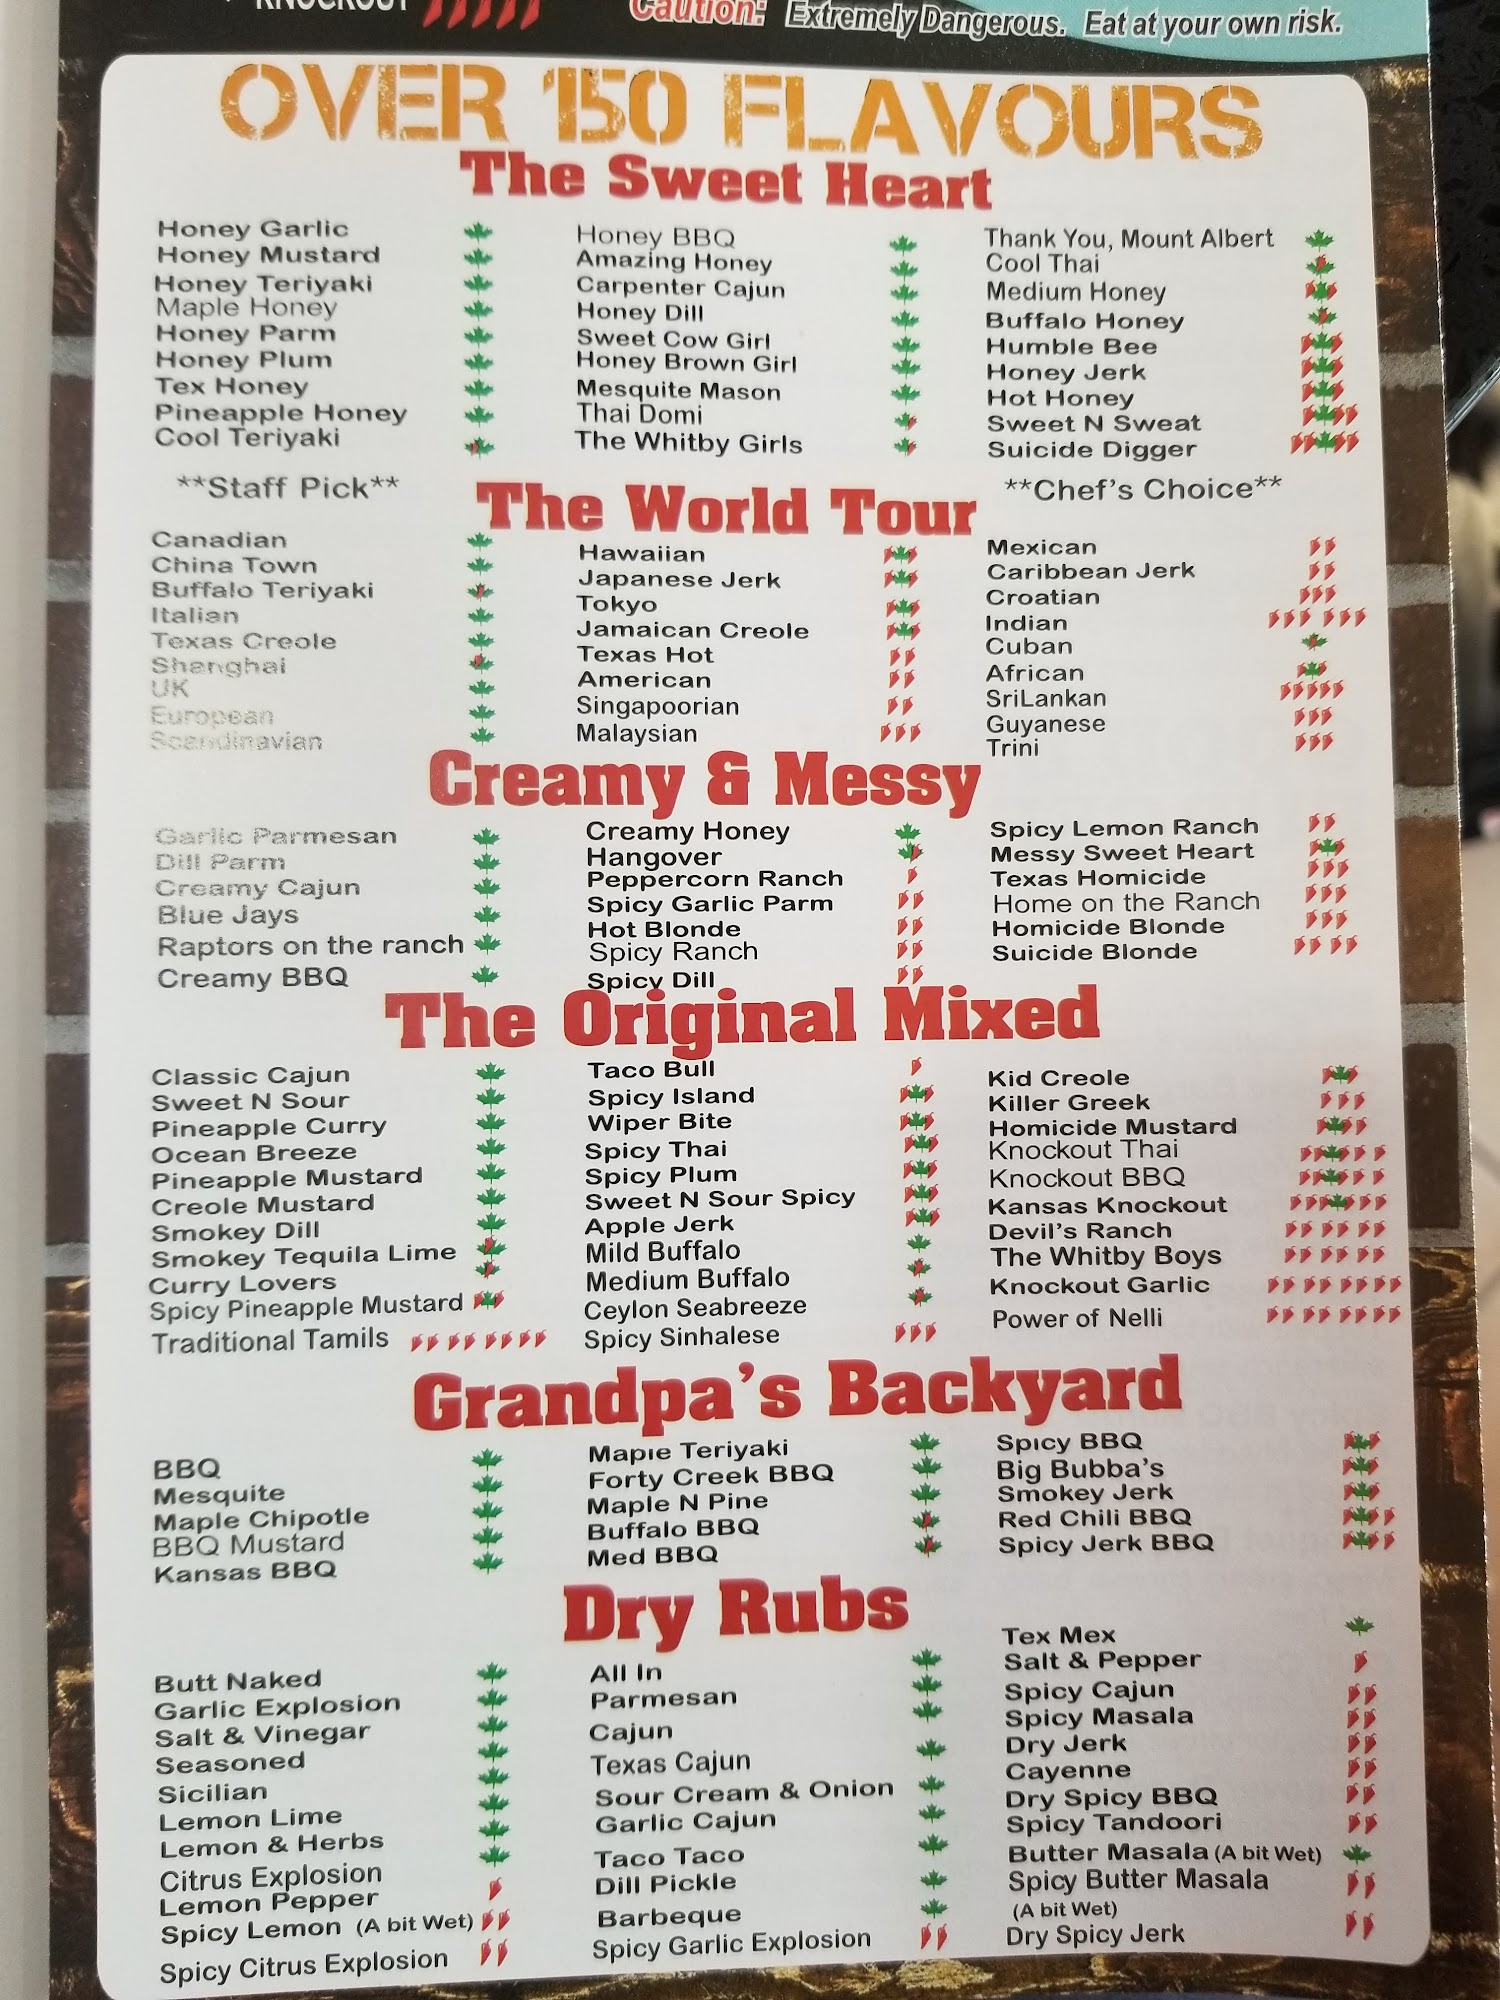 KNOCKOUT
Caution: Extremely Dangerous. Eat at your own risk.
OVER 150 FLAVOURS
The Sweet Heart
Honey Garlic
Honey Mustard
Honey Teriyaki
Maple Honey
Honey Parm
Honey Plum
Tex Honey
Pineapple Honey
Cool Teriyaki
Honey BBQ
Amazing Honey
Carpenter Cajun
Honey Dill
Sweet Cow Girl
Honey Brown Girl
Mesquite Mason
Thai Domi
The Whitby Girls
Thank You, Mount Albert
Cool Thai
Medium Honey
Buffalo Honey
Humble Bee
Honey Jerk
Hot Honey
Sweet N Sweat
Suicide Digger
**Staff Pick**
**Chef's Choice**
The World Tour
Canadian
China Town
Buffalo Teriyaki
Italian
Texas Creole
Shanghai
UK
European
Scandinavian
Hawaiian
Japanese Jerk
Tokyo
Jamaican Creole
Texas Hot
American
Singapoorian
Malaysian
Mexican
Caribbean Jerk
Croatian
Indian
Cuban
African
SriLankan
Guyanese
Trini
Creamy & Messy
Garlic Parmesan
Dill Parm
Creamy Cajun
Blue Jays
Raptors on the ranch
Creamy BBQ
Creamy Honey
Hangover
Peppercorn Ranch
Spicy Garlic Parm
Hot Blonde
Spicy Ranch
Spicy Dill
Spicy Lemon Ranch
Messy Sweet Heart
Texas Homicide
Home on the Ranch
Homicide Blonde
Suicide Blonde
The Original Mixed
Classic Cajun
Sweet N Sour
Pineapple Curry
Ocean Breeze
Pineapple Mustard
Creole Mustard
Smokey Dill
Smokey Tequila Lime
Curry Lovers
Spicy Pineapple Mustard
Traditional Tamils
Taco Bull
Spicy Island
Wiper Bite
Spicy Thai
Spicy Plum
Sweet N Sour Spicy
Apple Jerk
Mild Buffalo
Medium Buffalo
Ceylon Seabreeze
Spicy Sinhalese
Kid Creole
Killer Greek
Homicide Mustard
Knockout Thai
Knockout BBQ
Kansas Knockout
Devil's Ranch
The Whitby Boys
Knockout Garlic
Power of Nelli
Grandpa's Backyard
BBQ
Mesquite
Maple Chipotle
BBQ Mustard
Kansas BBQ
Maple Teriyaki
Forty Creek BBQ
Maple N Pine
Buffalo BBQ
Med BBQ
Spicy BBQ
Big Bubba's
Smokey Jerk
Red Chili BBQ
Spicy Jerk BBQ
Dry Rubs
Butt Naked
Garlic Explosion
Salt & Vinegar
Seasoned
Sicilian
Lemon Lime
Lemon & Herbs
Citrus Explosion
Lemon Pepper
Spicy Lemon (A bit Wet)
Spicy Citrus Explosion
All In
Parmesan
Cajun
Texas Cajun
Sour Cream & Onion
Garlic Cajun
Taco Taco
Dill Pickle
Barbeque
Spicy Garlic Explosion
Tex Mex
Salt & Pepper
Spicy Cajun
Spicy Masala
Dry Jerk
Cayenne
Dry Spicy BBQ
Spicy Tandoori
Butter Masala (A bit Wet)
Spicy Butter Masala
(A bit Wet)
Dry Spicy Jerk